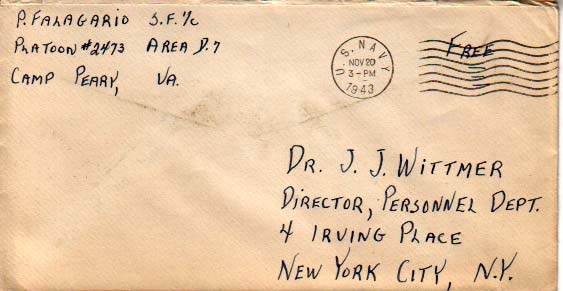 P. FALAGARIO S.F. 1/c
PLATOON #2473 AREA D.7
CAMP PEARY, VA.
U.S. NAVY
NOV 20
3-PM
1943
FREE
DR. J. J. WITTMER
DIRECTOR, PERSONNEL DEPT.
4 IRVING PLACE
NEW YORK CITY, N.Y.